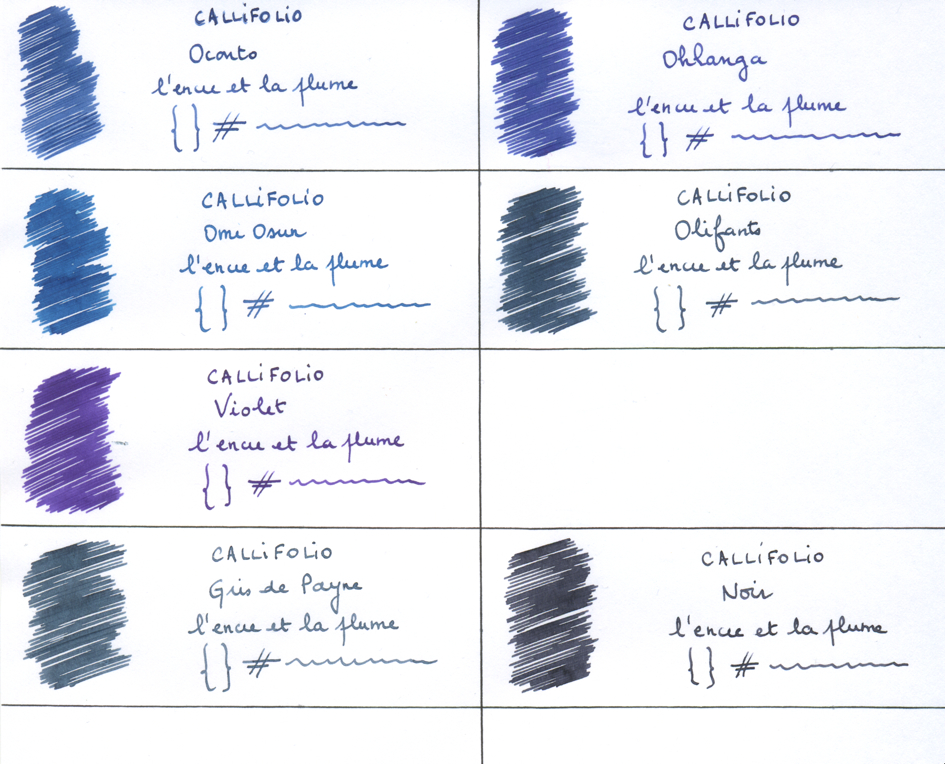 CALLiFOLiO
Oconto
l'encre et la plume
{ } #
CALLiFOLiO
Ohlanga
l'encre et la plume
{ } #
CALLiFOLiO
Omi Osun
l'encre et la plume
{ } #
CALLiFOLiO
Olifants
l'encre et la plume
{ } #
CALLiFOLiO
Violet
l'encre et la plume
{ } #
CALLiFOLiO
Gris de Payne
l'encre et la plume
{ } #
CALLiFOLiO
Noir
l'encre et la plume
{ } #